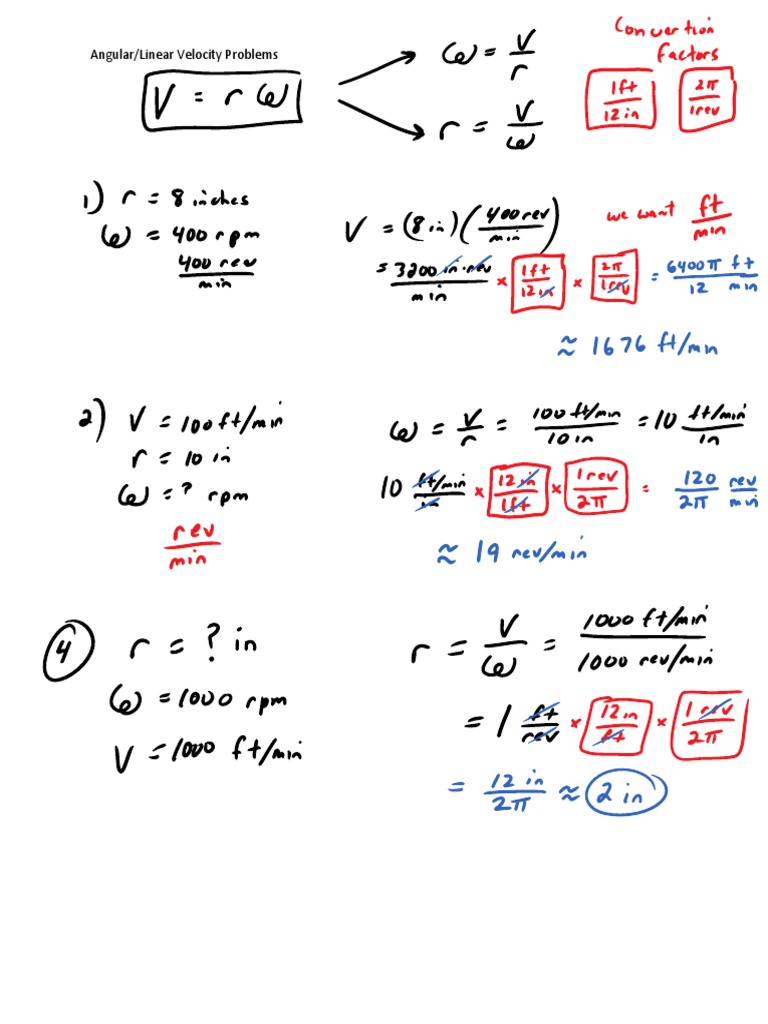 Angular/Linear Velocity Problems
V = r ω
ω = V/r
r = V/ω
Convertion
factors
1ft/12in 2π/1rev
1) r = 8 inches
ω = 400 rpm
400 rev/min
V = (8 in)(400 rev/min)
we want ft/min
= 3200 in·rev/min × 1ft/12in × 2π/1rev = 6400π/12 ft/min
≈ 1676 ft/min
2) V = 100 ft/min
r = 10 in
ω = ? rpm
rev/min
ω = V/r = 100 ft/min/10 in = 10 ft/min/in
10 ft/min/in × 12 in/1ft × 1 rev/2π = 120/2π rev/min
≈ 19 rev/min
4 r = ? in
ω = 1000 rpm
V = 1000 ft/min
r = V/ω = 1000 ft/min/1000 rev/min
= 1 ft/rev × 12in/ft × 1 rev/2π
= 12 in/2π ≈ 2 in